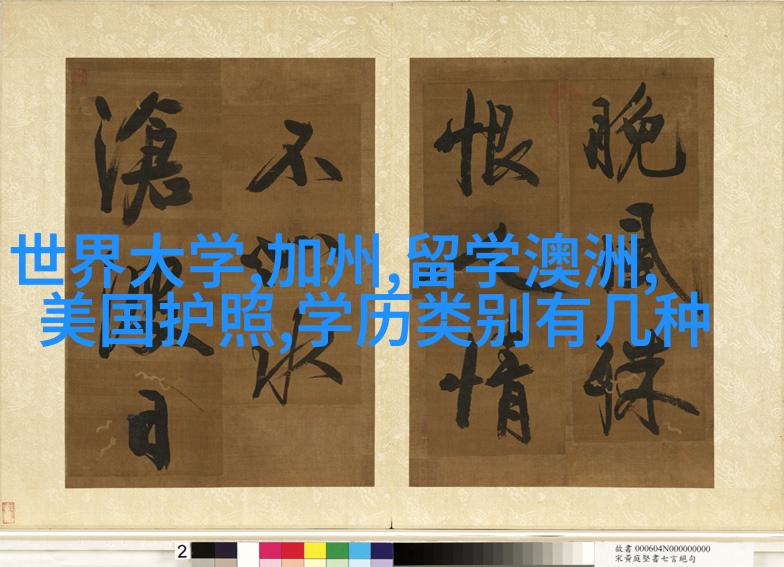 晚風殊
恨情
不水
滄日
世界大学,加州,留学澳洲,
美国护照,学历类别有几种
2
故書 000604N000000000
宋黃庭堅書七言絕句